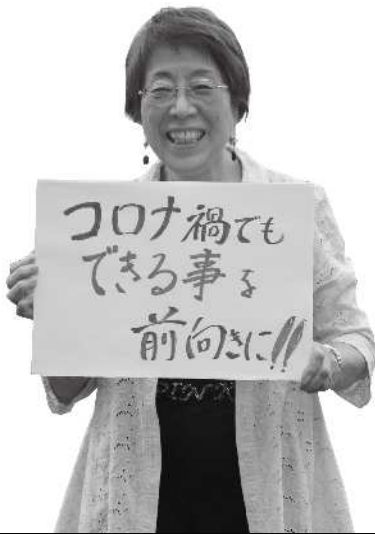 コロナ禍でも
できる事を
前向きに!!